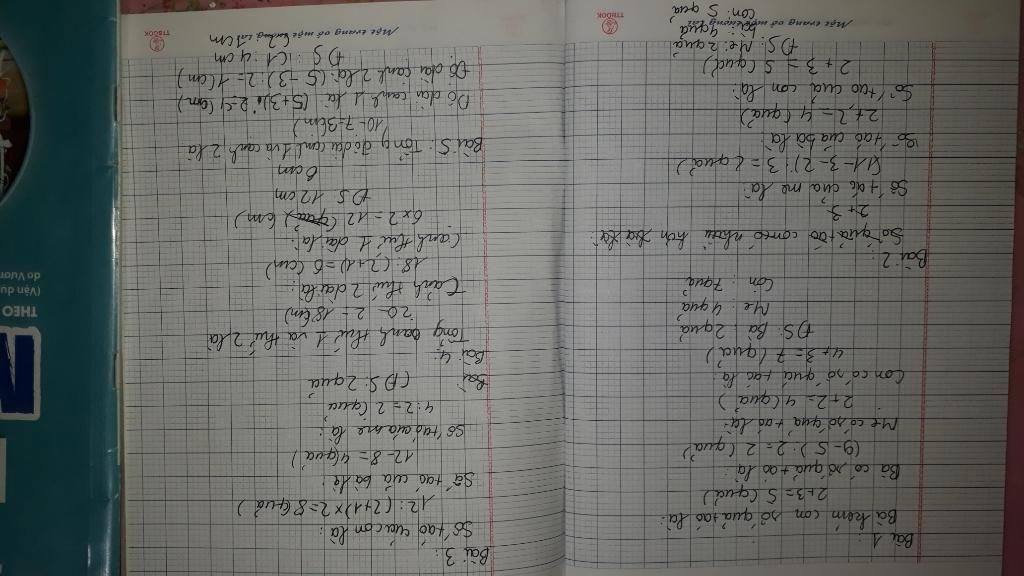 Bài 1:
Bà kém con số quả táo là:
2+3=5 (quả)
Bà có số quả táo là:
(9-5):2=2 (quả)
Mẹ có số quả táo là:
2+2=4 (quả)
Con có số quả táo là:
4+3=7 (quả)
ĐS: Bà: 2 quả
Mẹ: 4 quả
Con: 7 quả
Bài 2:
Số quả táo con nhiều hơn là
2+3
Số táo của mẹ là:
(11-3-2):3=2 (quả)
Số táo của bà là:
2+2=4 (quả)
Số táo của con là:
2+3=5 (quả)
ĐS: Mẹ: 2 quả
bà: 4 quả
con: 5 quả
Một trang vở mở một tương lai
TTBOOK
Bài 3:
Số táo của con là:
12:(2+1)x2=8 (quả)
Số táo của bà là:
12-8=4 (quả)
Số táo của mẹ là:
4:2=2 (quả
Bài (ĐS: 2 quả
Bài 4:
Tổng cạnh thứ 1 và thứ 2 là
20-2=18 (cm)
Cạnh thứ 2 dài là:
18:(2+1)=6 (cm)
Cạnh thứ 1 dài là:
6x2=12 (cm)
ĐS 12 cm
6 cm
Bài 5: Tổng độ dài cạnh 1 và cạnh 2 là
10-7=3 (cm)
Độ dài cạnh 1 là (5+3):2=4 (cm)
Độ dài cạnh 2 là: (5-3):2=1 (cm)
ĐS: C1: 4 cm
C2: 1 cm
Một trang vở mở một tương lai
TTBOOK
N
THEO
(Vận dụ
do Vươn